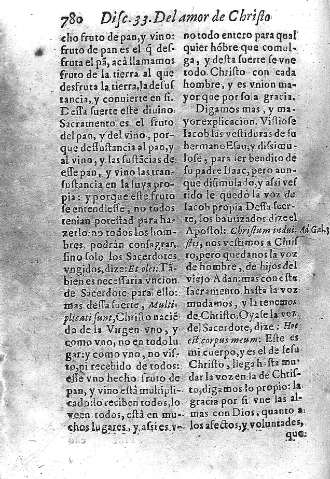 780 Disc. 33. Del amor de Christo
cho fruto de pan, y vino:
fruto de pan es el q̃ des-
fruta el pã, acà llamamos
fruto de la tierra al que
desfruta la tierra, la desus-
tancia, y convierte en si.
Dessa suerte este divino
Sacramento es el fruto
del pan, y del vino, por-
que dessustancia al pan, y
al vino, y las sustãcias de
esse pan, y vino las tran-
sustancia en la suya pro-
pia: y porque este fruto
se entendiesse, no todos
tenian potestad para ha-
zerlo: no todos los hom-
bres podràn consagrar,
sino solo los Sacerdotes
vngidos, dize: Et olei: Tã-
bien es necessaria vncion
de Sacerdote para ello:
mas dessa suerte, Multi-
plicati sunt, Christo nació
de la Virgen vno, y
como vno, no en todo lu-
gar: y como vno, no vis-
to, ni recebido de todos:
esse vno hecho fruto de
pan, y vino està multipli-
cado: lo reciben todos, lo
veen todos, està en mu-
chos lugares, y assi es v-
no todo entero para qual
quier hõbre que comul-
ga, y desta suerte se vne
todo Christo con cada
hombre, y es vnion ma-
yor que por sola gracia.
Digamos mas, y ma-
yor explicacion. Vistiose
Iacob las vestiduras de su
hermano Esau, y dissimu-
lose, para ser bendito de
su padre Isaac, pero aun-
que dissimulado, y assi ves-
tido le quedò la voz de
Iacob propia. Desta suer-
te, los bautizados dize el
Apostol: Christum indui- Ad Gal. 3
stis, nos vestimos a Chris-
to, pero quedanos la voz
de hombre, de hijos del
viejo Adan: mas con este
sacramento hasta la voz
mudamos, y la tenemos
de Christo. Oyase la voz
del Sacerdote, dize: Hoc
est corpus meum: Este es
mi cuerpo, y es el de Iesu
Christo, llega hasta mu-
dar la voz en la de Chris-
to, digamos lo propio: la
gracia por si vne las al-
mas con Dios, quanto a
los afectos, y voluntades,
que